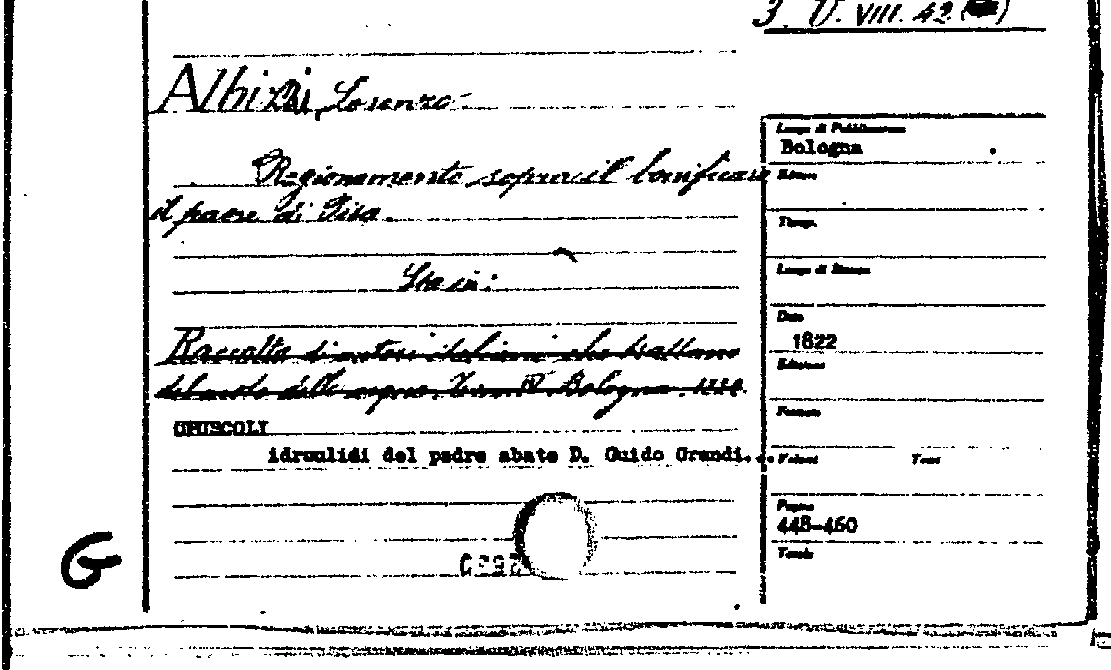 3. V. VIII. 42
Albizzi, Lorenzo
Ragionamento sopra il bonificare
il paese di Pisa.
Sta in:
Raccolta di autori italiani che trattano
del moto delle acque. Tom. IV. Bologna.
OPUSCOLI
idraulidi del padre abate D. Guido Grandi...
G
Luogo di Pubblicazione
Bologna
Editore
Tipogr.
Luogo di Stampa
Data
1822
Edizione
Formato
Volumi Tomi
Pagine
448-460
Tavole